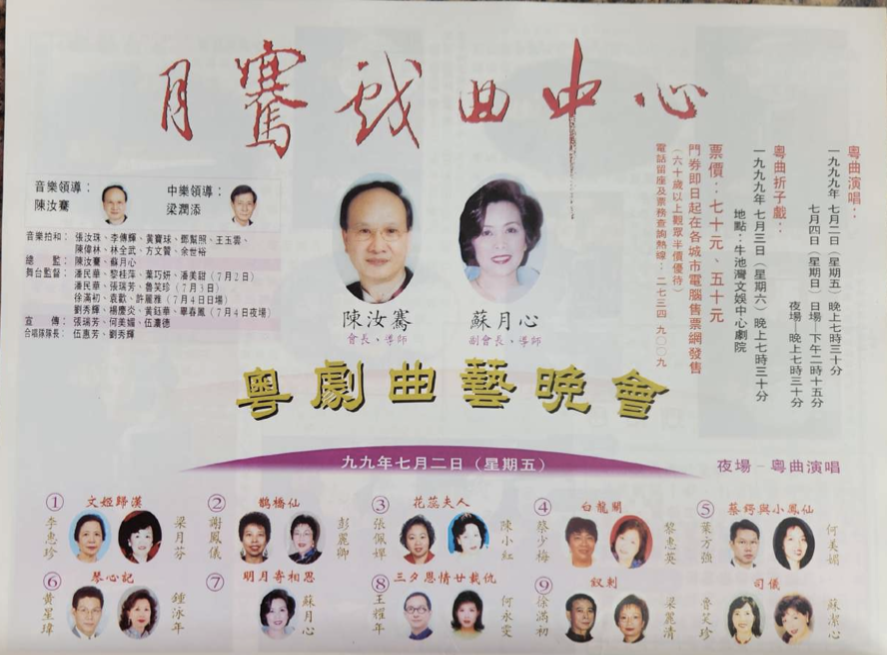 月騫戲曲中心
粵曲演唱：
一九九九年 七月二日（星期五）晚上七時三十分
七月四日（星期日）日場—下午二時十五分
夜場—晚上七時三十分
粵曲折子戲：
一九九九年 七月三日（星期六）晚上七時三十分
地點：牛池灣文娛中心劇院
票價：七十元、五十元
門券即日起在各城市電腦售票網發售
（六十歲以上觀眾半價優待）
電話留座及票務查詢熱線：二七三四 九００九
音樂領導：
陳汝騫
中樂領導：
梁潤添
音樂拍和： 張汝珠、李傳輝、黃寶球、鄧幫照、王玉雲、
陳偉林、林全武、方文贊、余世裕
總　監： 陳汝騫、蘇月心
舞台監督： 潘民華、黎桂萍、葉巧妍、潘美甜（7月2日）
潘民華、張瑞芳、魯笑珍（7月3日）
徐滿初、袁歡、許麗雅（7月4日日場）
劉秀輝、楊慶炎、黃鈺華、畢春鳳（7月4日夜場）
宣　傳： 張瑞芳、何美媚、伍灌德
合唱隊隊長： 伍惠芳、劉秀輝
陳汝騫
會長、導師
蘇月心
副會長、導師
粵劇曲藝晚會
九九年七月二日（星期五）
夜場－粵曲演唱
① 文姬歸漢
李惠珍
梁月芬
② 鵲橋仙
謝鳳儀
彭麗卿
③ 花蕊夫人
張佩嬋
陳小紅
④ 白龍關
蔡少梅
黎惠英
⑤ 蔡鍔與小鳳仙
葉方強
何美媚
⑥ 琴心記
黃星瑋
鍾泳年
⑦ 明月寄相思
蘇月心
⑧ 三夕恩情廿載仇
王惟年
何永雯
⑨ 釵刺
徐滿初
梁麗清
司儀
魯笑珍
蘇潔心